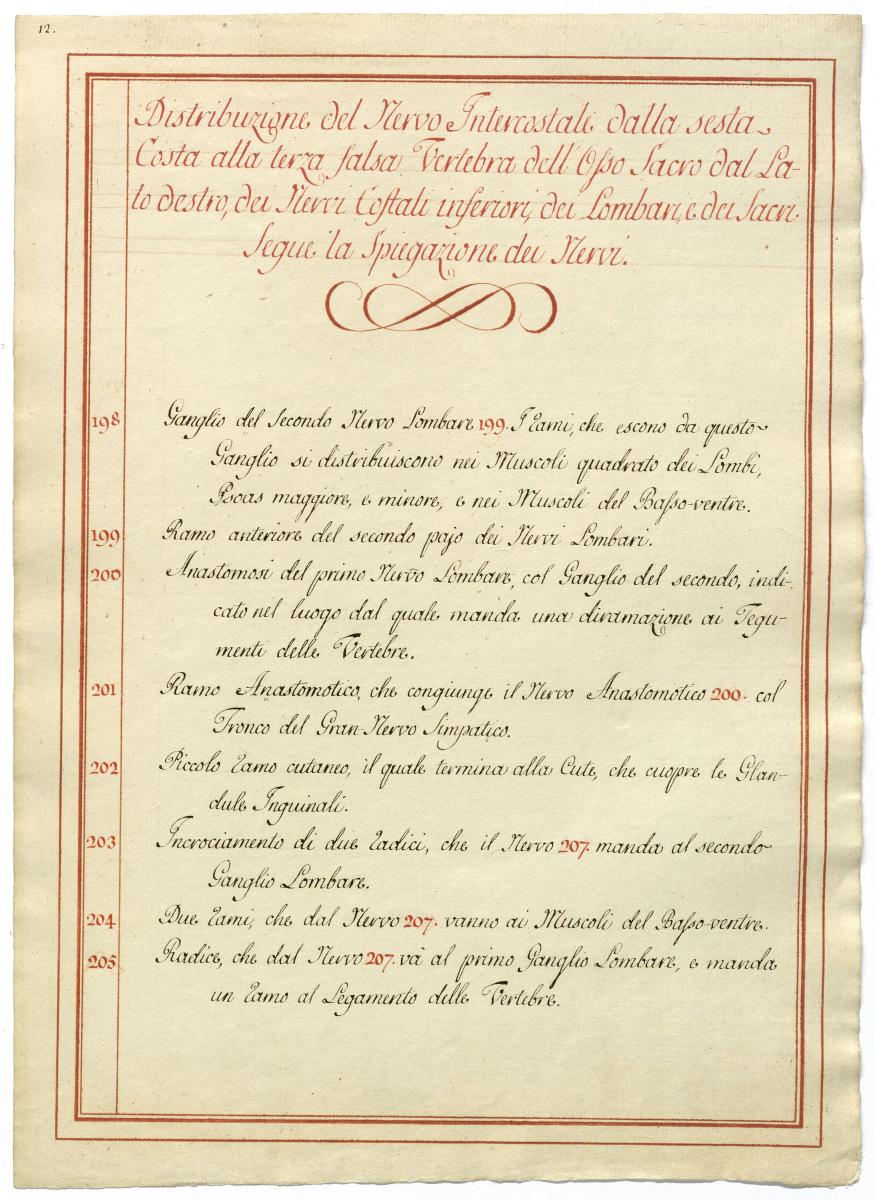 12.
Distribuzione del Nervo Intercostale dalla sesta
Costa alla terza falsa Vertebra dell'Osso Sacro dal La-
to destro, dei Nervi Costali inferiori, dei Lombari, e dei Sacri.
Segue la Spiegazione dei Nervi.
198 Ganglio del Secondo Nervo Lombare 199. I Rami, che escono da questo
Ganglio si distribuiscono nei Muscoli quadrato dei Lombi,
Psoas maggiore, e minore, e nei Muscoli del Basso-ventre.
199 Ramo anteriore del secondo pajo dei Nervi Lombari.
200 Anastomosi del primo Nervo Lombare, col Ganglio del secondo, indi-
cato nel luogo dal quale manda una diramazione ai Tegu-
menti delle Vertebre.
201 Ramo Anastomotico, che congiunge il Nervo Anastomotico 200. col
Tronco del Gran-Nervo Simpatico.
202 Piccolo Ramo cutaneo, il quale termina alla Cute, che cuopre le Glan-
dule Inguinali.
203 Incrociamento di due Radici, che il Nervo 207. manda al secondo
Ganglio Lombare.
204 Due Rami, che dal Nervo 207. vanno ai Muscoli del Basso-ventre.
205 Radice, che dal Nervo 207. và al primo Ganglio Lombare, e manda
un Ramo al Legamento delle Vertebre.